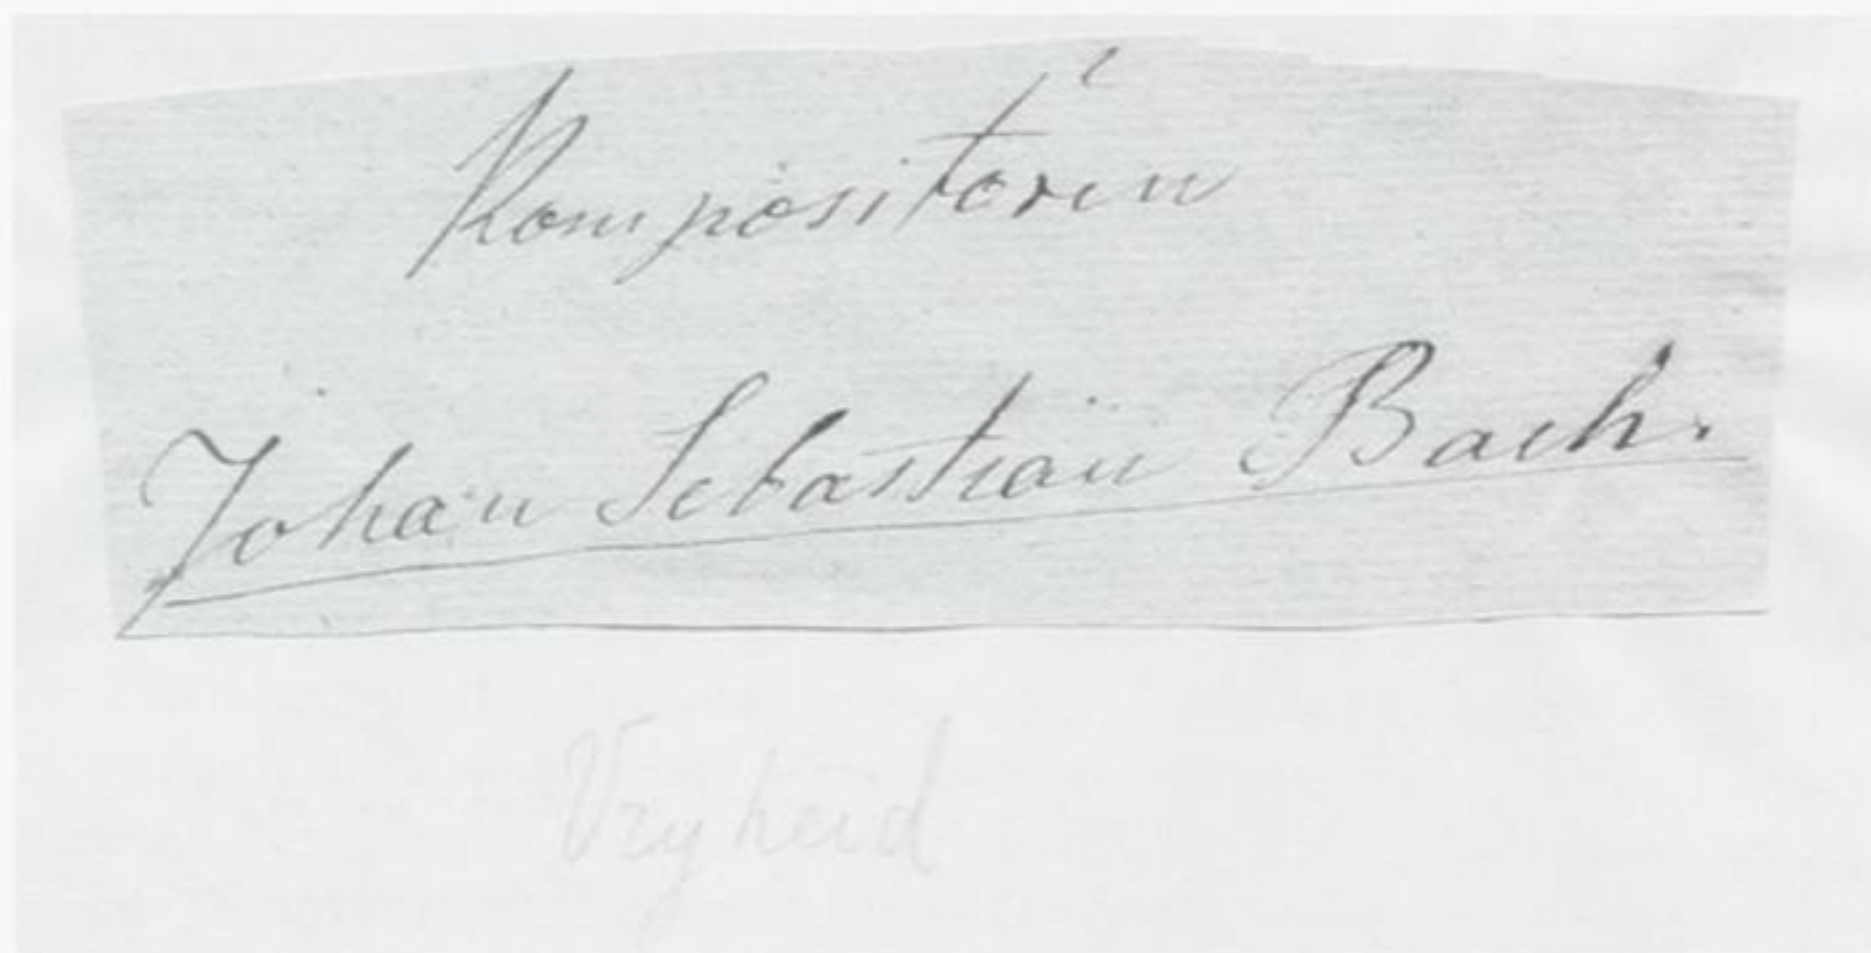 Kompositörin
Johan Sebastian Bach.
Vryheid